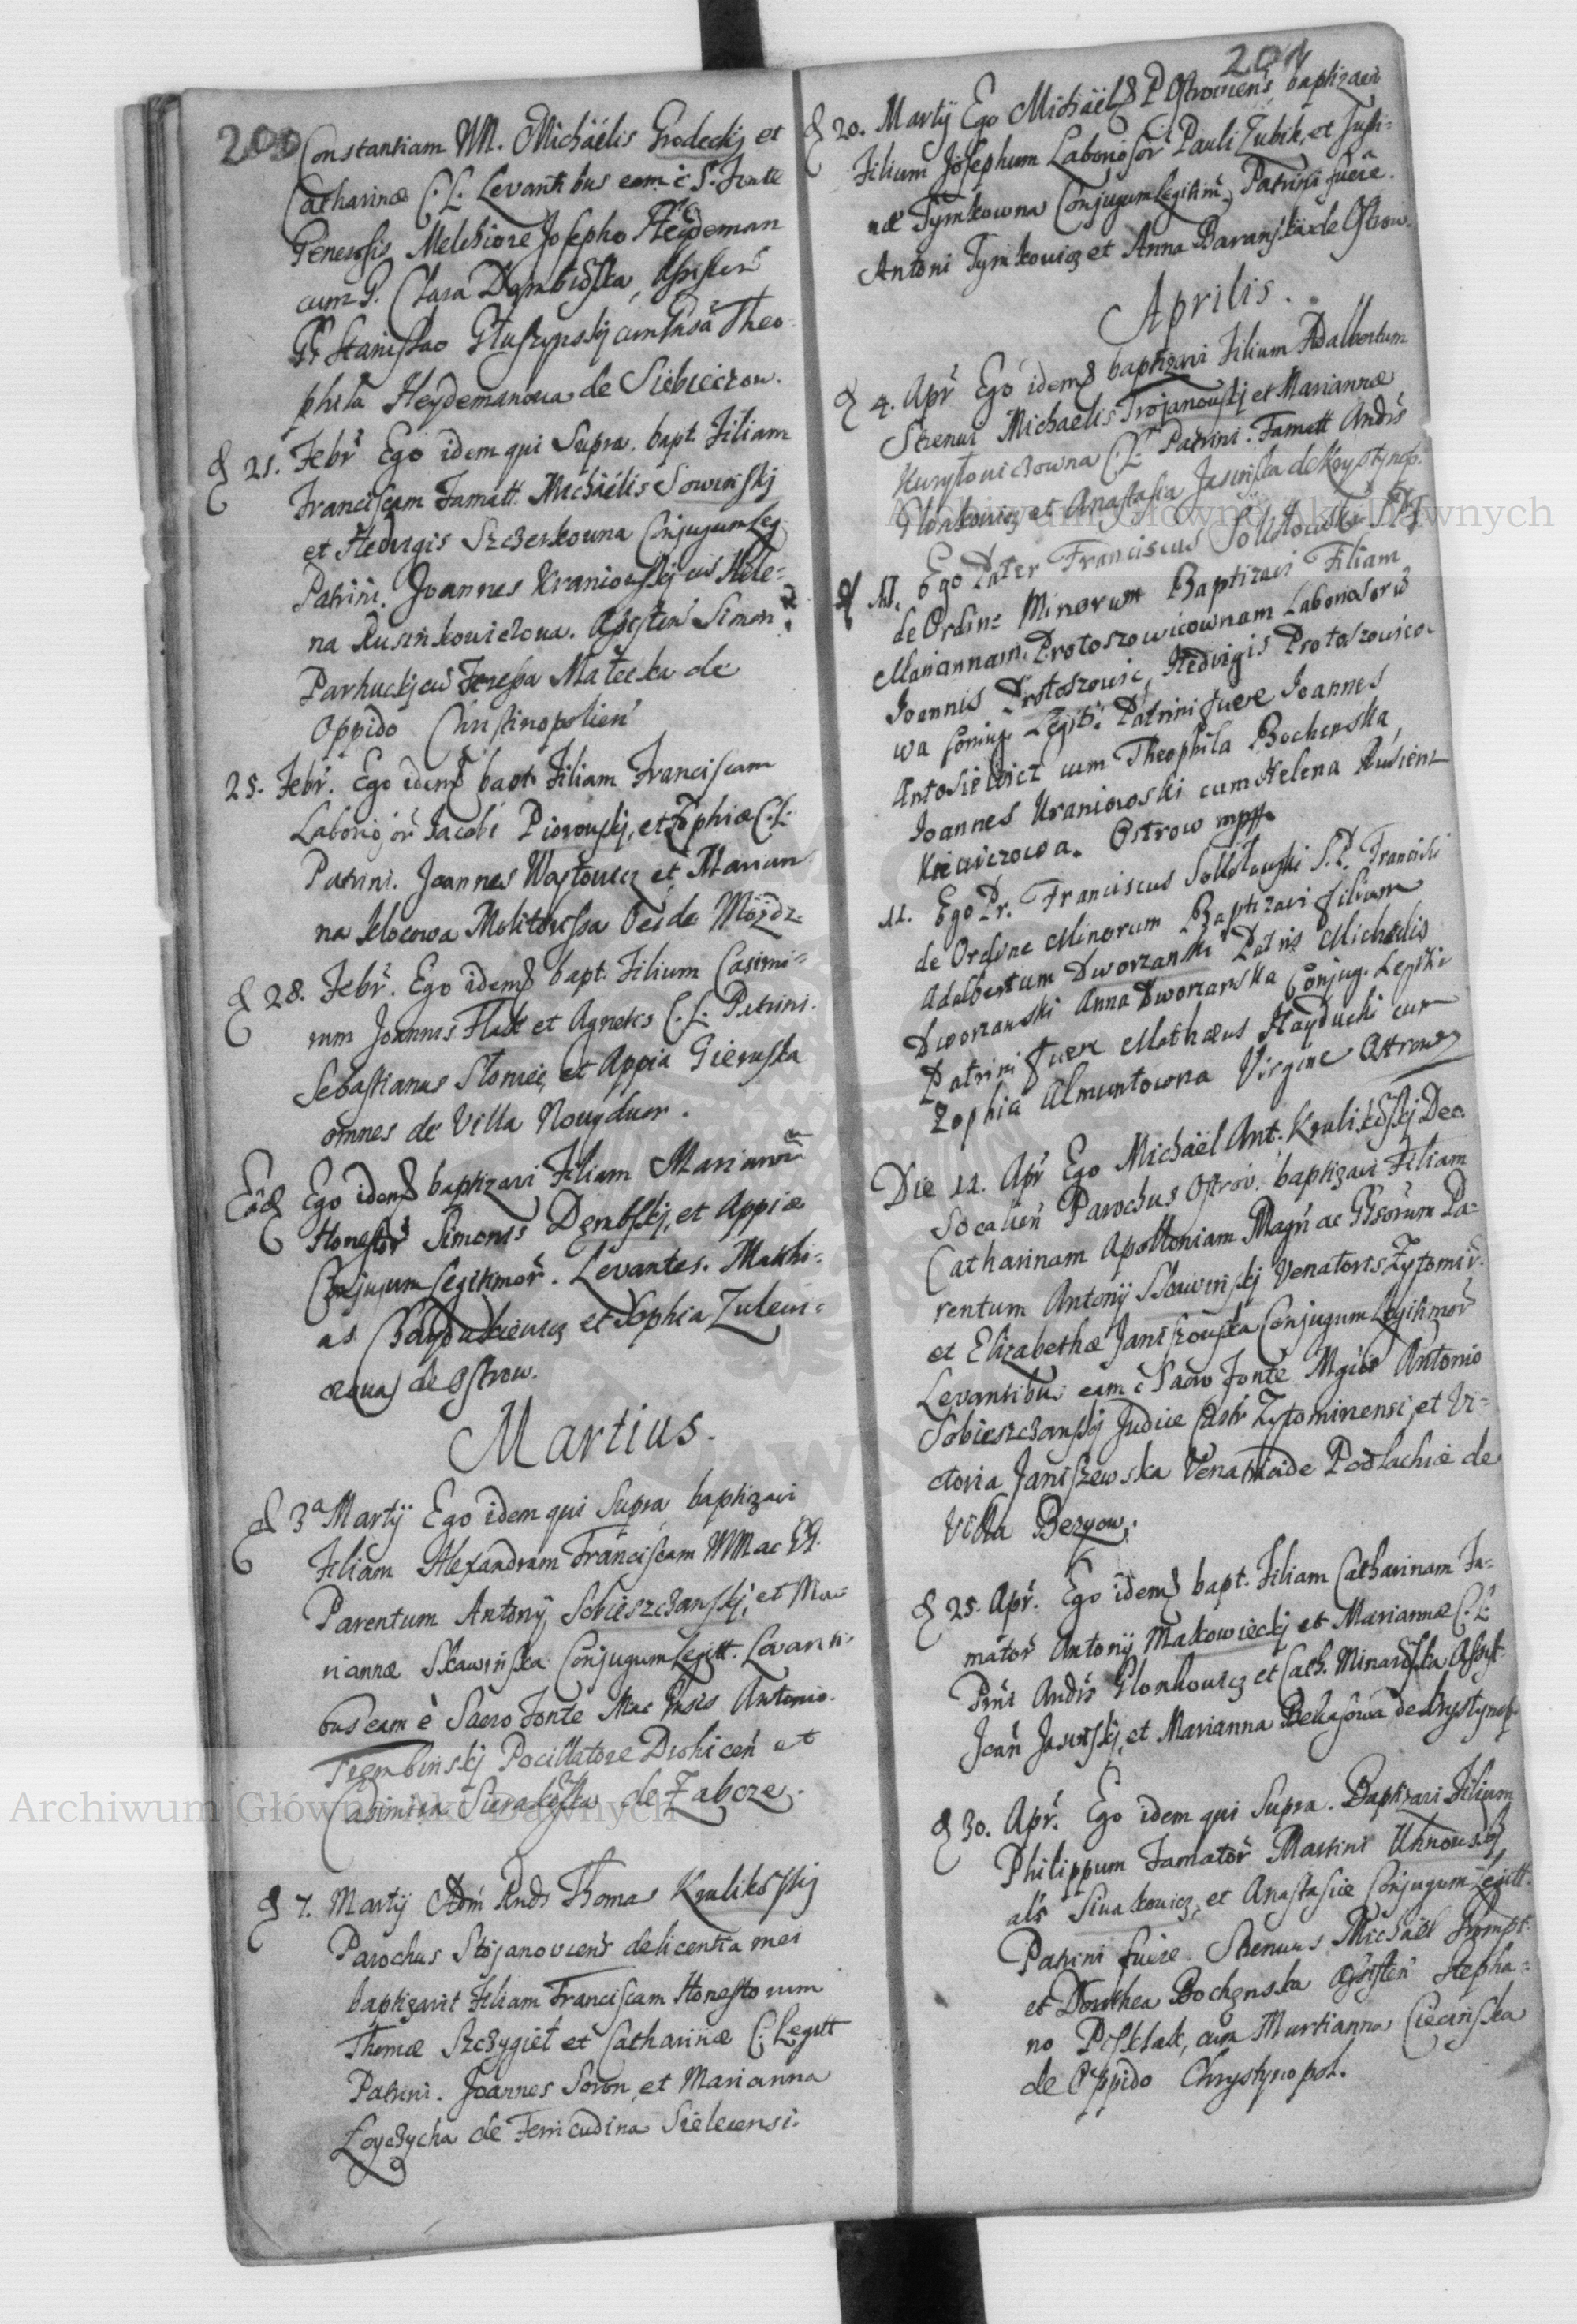 200
Constantiam MM. Michäelis Grodeckij et
Catharinæ C. L. Levantibus eam è S. Fonte
Generosis Melchiore Josepho Heydeman
cum G. Clara Dembiõska, Assisten
Stanislao Głuszynskij cum Theo-
phila Heydemanowa de Siebieczow.
d 21. Febr Ego idem qui Supra bapt. Filiam
Franciscam Famatt. Michäelis Sowinskij
et Hedvigis Szczerkowna Conjugum Leg
Patrini. Joannes Kraniowskij cu Hele-
na Rusinkowiczowa. Assisten Simon
Parhuckij cu Teressa Małecka de
Oppido Christinopolien
25. Febr. Ego idem bapt Filiam Franciscam
Laborios̃or Jacobi Piorowskij, et Zophiæ C. L.
Patrini. Joannes Waytowicz et Marian
na Klocowa Molitorissa de
d 28. Febr. Ego idem bapt. Filium Casimi-
rum Joannis Flak et Agnetis C. L. Patrini.
Sebastianus Słomiec, et Appia Gieruska
omnes de Villa Nougduor.
Eãd Ego idem baptizavi Filiam Mariannã
Honestor Simonis Dembskij, et Appiæ
Conjugum Legitimor. Levantes. Matthi-
as Haydukiewicz et Sophia Zulewi-
czowa de Ostrow.
Martius.
d 3ª Martij Ego idem qui Supra baptizavi
Filiam Alexandram Franciscam MM ac GG.
Parentum Antonij Sobieszczanskij, et Ma-
riannæ Skawinska Conjugum Legitt. Levanti-
bus eam è Sacro Fonte Antonio
Trembinskij Pocillatore Drohicen et
Casimira Sierakõska de Zabcze.
d 7. Martij Adm Rnds Thomas Krulikõskij
Parochus Stojanoviens de licentia mei
baptizavit Filiam Franciscam Honestorum
Thomæ Szczygieł et Catharinæ C. Legitt
Patrini. Joannes Soron, et Marianna
Łoyczycha de Ferricudina Sielecensi.
201
d 20. Martij Ego Michäel P Ostroviens baptizavi
Filium Josephum Laboriosor Pauli Zubik, et Justi-
næ Tymkowna Conjugum Legitim, Patrini fuere.
Antoni Tymkowicz et Anna Baranska de Ostrow.
Aprilis.
d 4. Apr Ego idem baptizavi Filium Adalbertum
Strenui Michaelis Trojanouskij et Mariannæ
Kuryłowiczowna C. L. Patrini. Famatt Andrs
Glonkowicz et Anastasia Jasinska de Krystynop.
d 11. Ego Pater Franciscus Sokołowski
de Ordine Minorum Baptizavi Filiam
Mariannam Protoszowicownam Laboriosorũ
Joannis Protoszowic, Hedvigis Protoszowico-
wa Coniug. Legiti. Patrini fuere Joannes
Antosiewicz cum Theophila Bochenska,
Joannes Kraniowski cum Helena Rusien-
kiewiczowa. Ostrow mpp
11. Ego Pr. Franciscus Sokołowski S. P. Francisci
de Ordine Minorum Baptizavi filium
Adalbertum Dworzanski Patris Michaelis
Dworzanski Anna Dworzanska Conjug. Legiti
Patrini fuere Mathæus Hayduchi cum
Zophia Almuntowna Virgine Ostrow
Die 11. Apr Ego Michäel Ant. Krulikõskij Dec.
Socalien Parochus Ostrov. baptizavi Filiam
Catharinam Apolloniam Magn ac Gñsorum Pa-
rentum Antonij Skawinskij Venatoris Zytomir.
et Elizabethæ Janiszouska Conjugum Legitimor
Levantibus eam è Sacro Fonte Antonio
Sobieszczanskij Judice Castr Zytominensi, et Vi-
ctoria Janiszewska Venatricide Podlachiæ de
Villa Bezyow.
d 25. Apr. Ego idem bapt. Filiam Catharinam Fa-
mator Antonij Makowieckij et Mariannæ C. L.
Prni Andrs Glonkowicz et Cath. Minarõska Assyst
Jean Jasinskij, et Marianna Bekasowa de Krystynop.
d 30. Apr. Ego idem qui Supra. Baptizavi Filium
Philippum Famator Martini Uhnouskij
als Siwakowicz, et Anastasiæ Conjugum Legitt.
Patrini fuere. Strenuus Michäel Prompt.
et Dorothea Bochenska Assisten Stepha-
no Pisklak, cum Martianna Ciecinska
de Oppido Chrystynopol.
Archiwum Główne Akt Dawnych
Archiwum Główne Akt Dawnych